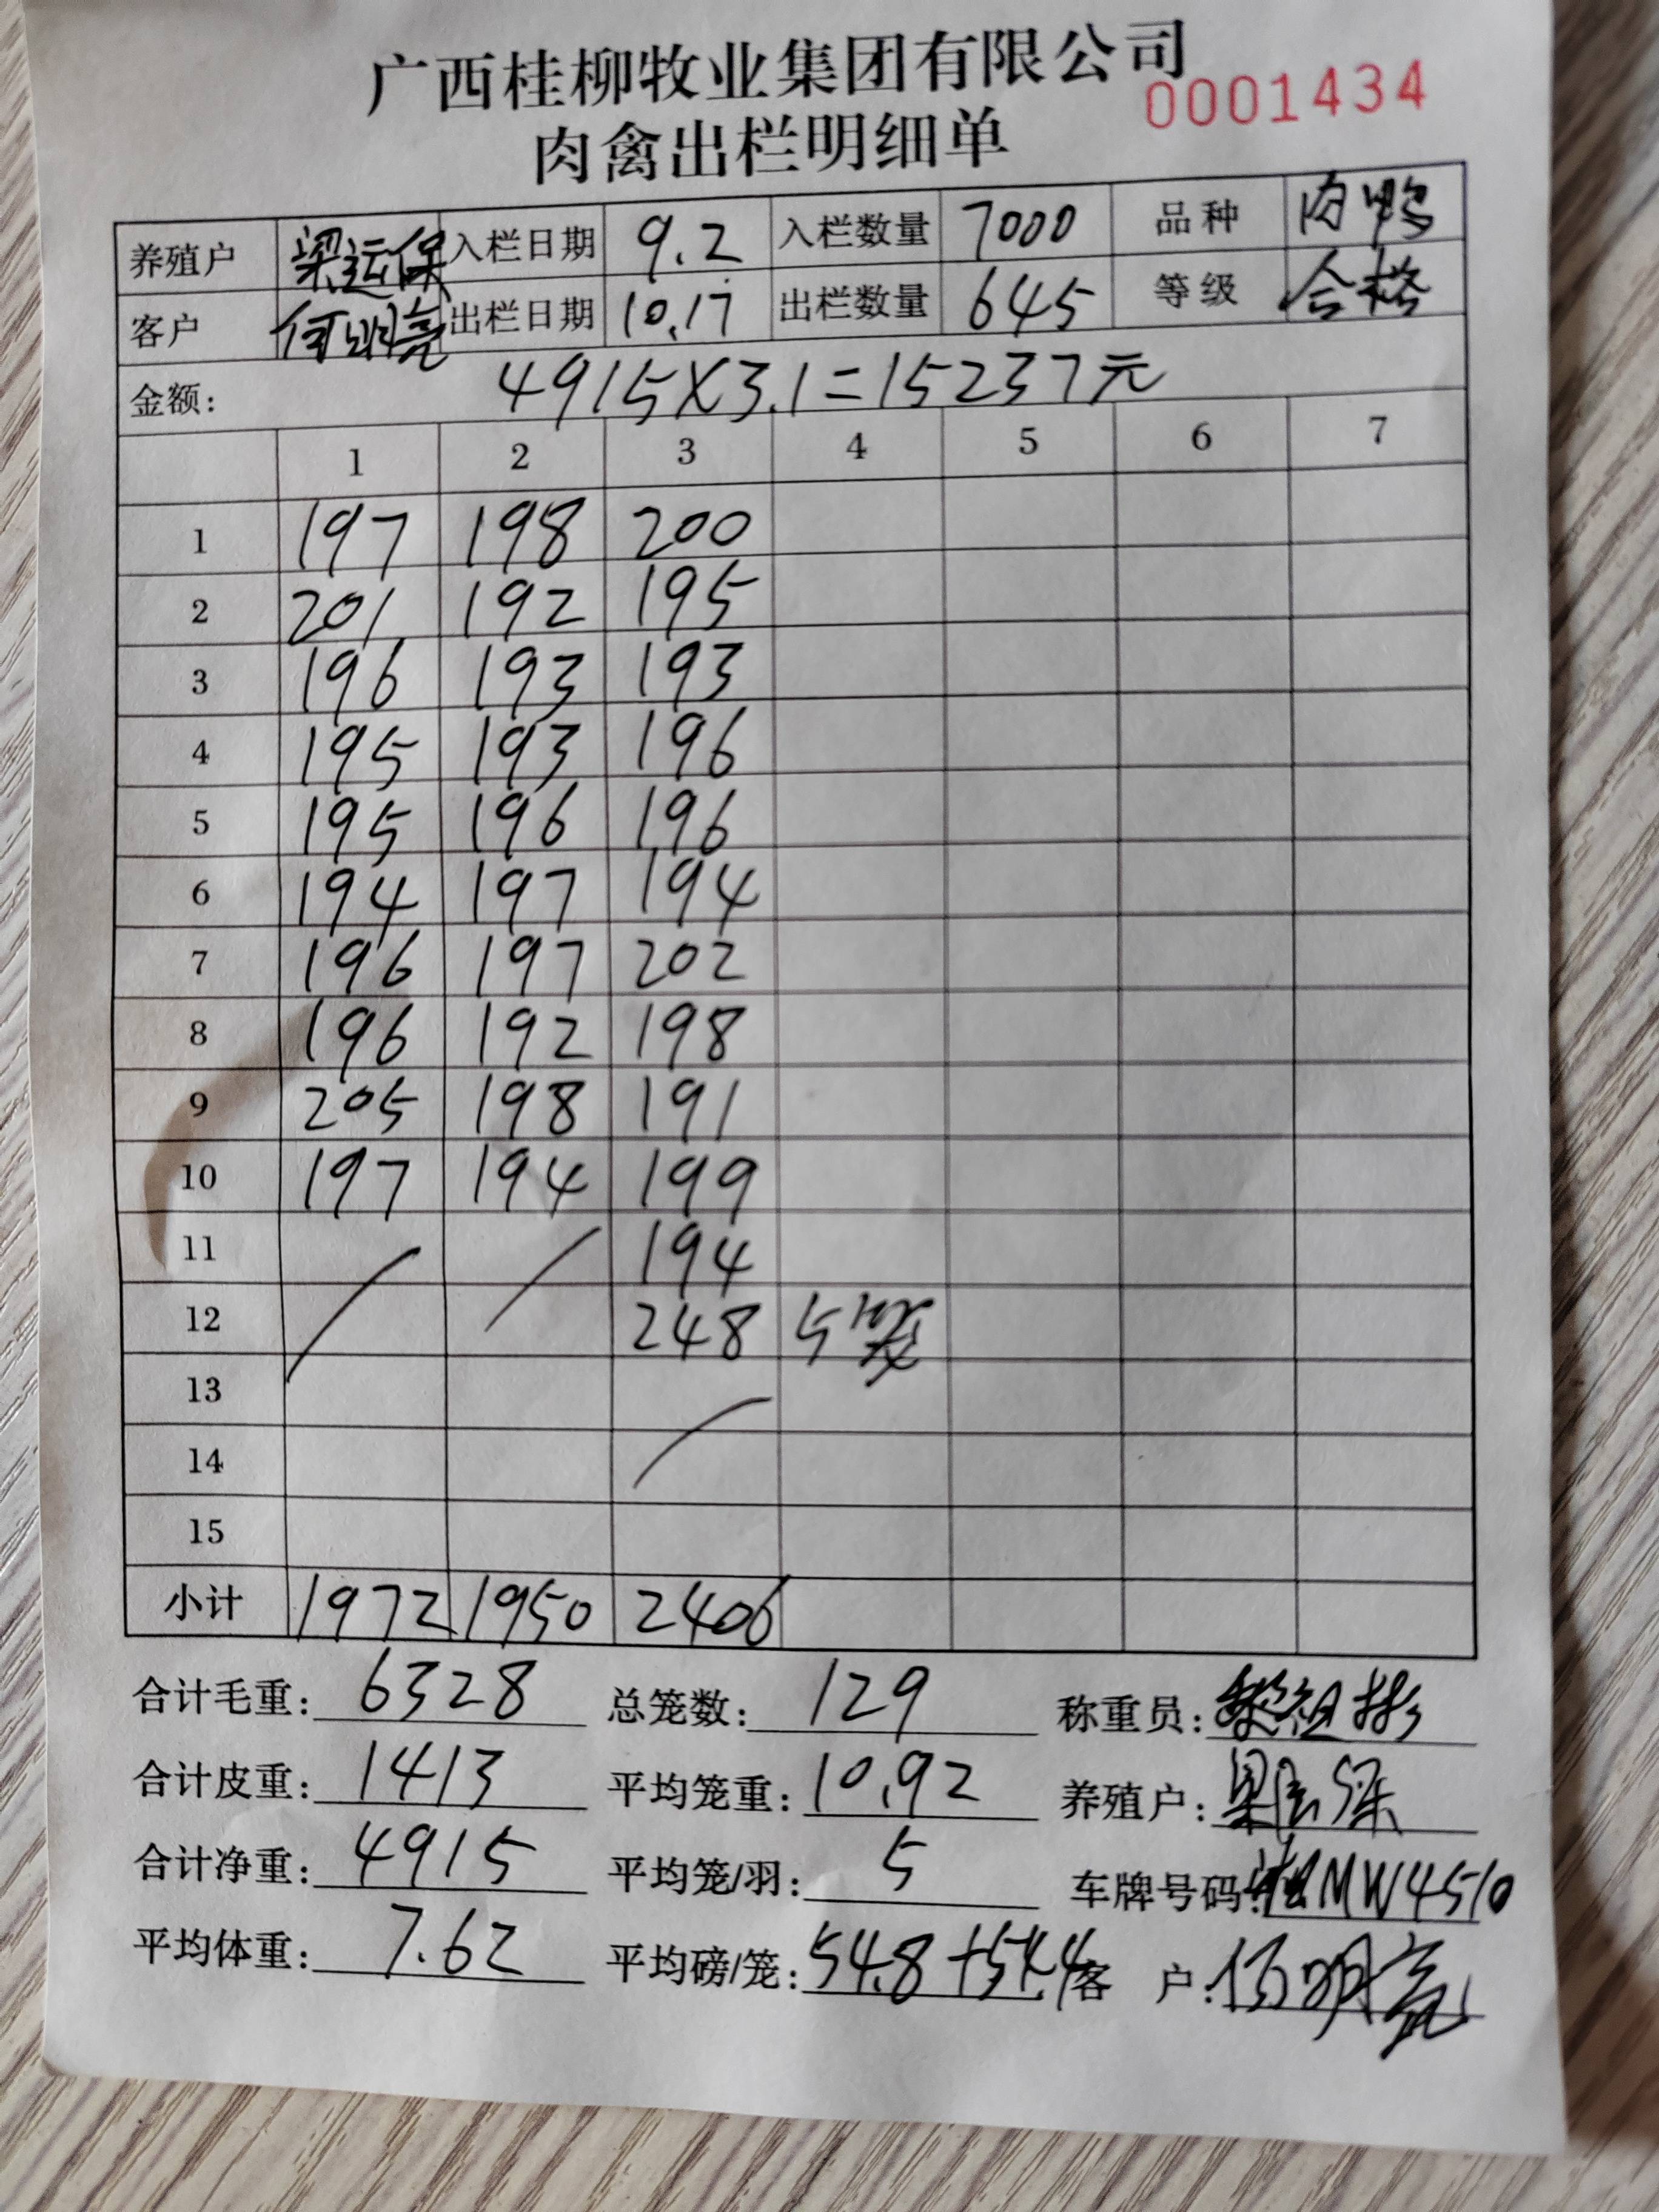 广西桂柳牧业集团有限公司
0001434
肉禽出栏明细单
养殖户 梁运保 入栏日期 9.2 入栏数量 7000 品种 肉鸭
客户 何明亮 出栏日期 10.17 出栏数量 645 等级 合格
金额: 4915X3.1=15237元
1 2 3 4 5 6 7
1 197 198 200
2 201 192 195
3 196 193 193
4 195 193 196
5 195 196 196
6 194 197 194
7 196 197 202
8 196 192 198
9 205 198 191
10 197 194 199
11 194
12 248 5笼
13
14
15
小计 1972 1950 2406
合计毛重: 6328 总笼数: 129 称重员: 黎祖彬
合计皮重: 1413 平均笼重: 10.92 养殖户:
合计净重: 4915 平均笼/羽: 5 车牌号码: MW4510
平均体重: 7.62 平均磅/笼: 54.8+54.4 客 户: 何明亮